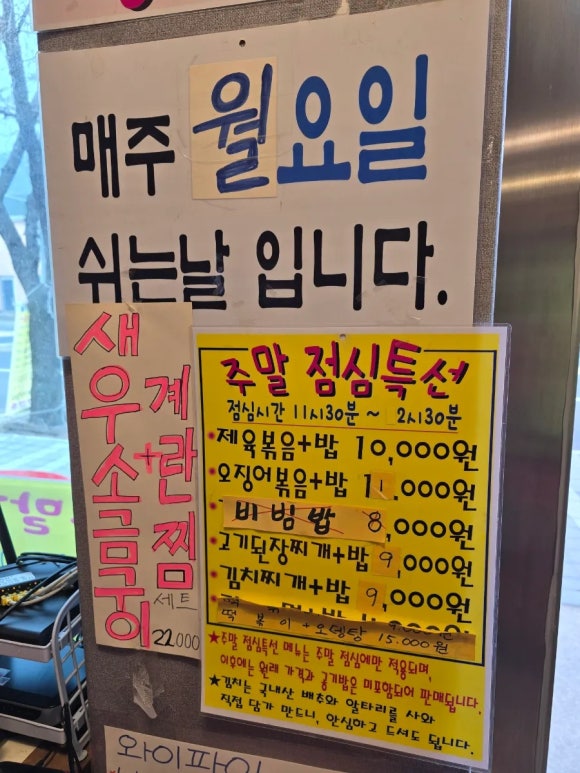 매주 월요일
쉬는날 입니다.
새우소금구이
+
계란찜
세트
22,000
주말 점심특선
점심시간 11시30분 ~ 2시30분
제육볶음+밥 10,000원
오징어볶음+밥 11,000원
비빔밥 8,000원
고기된장찌개+밥 9,000원
김치찌개+밥 9,000원
떡볶이+오뎅탕 15.000원
★주말 점심특선 메뉴는 주말 점심에만 적용되며,
이후에는 원래 가격과 공기밥은 미포함되어 판매됩니다.
★김치는 국내산 배추와 알타리를 사와
직접 담가 만드니, 안심하고 드셔도 됩니다.
와이파이